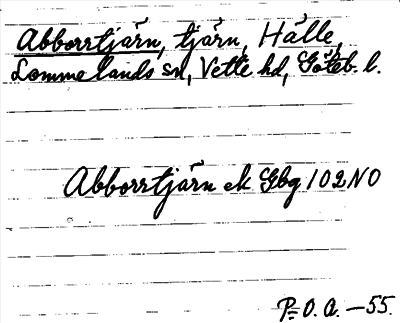 Abborrtjärn, tjärn, Hälle,
Lommelands sn, Vette hd, Göteb. l.
Abborrtjärn ek Gbg 102 NO
P. O. A. —55.